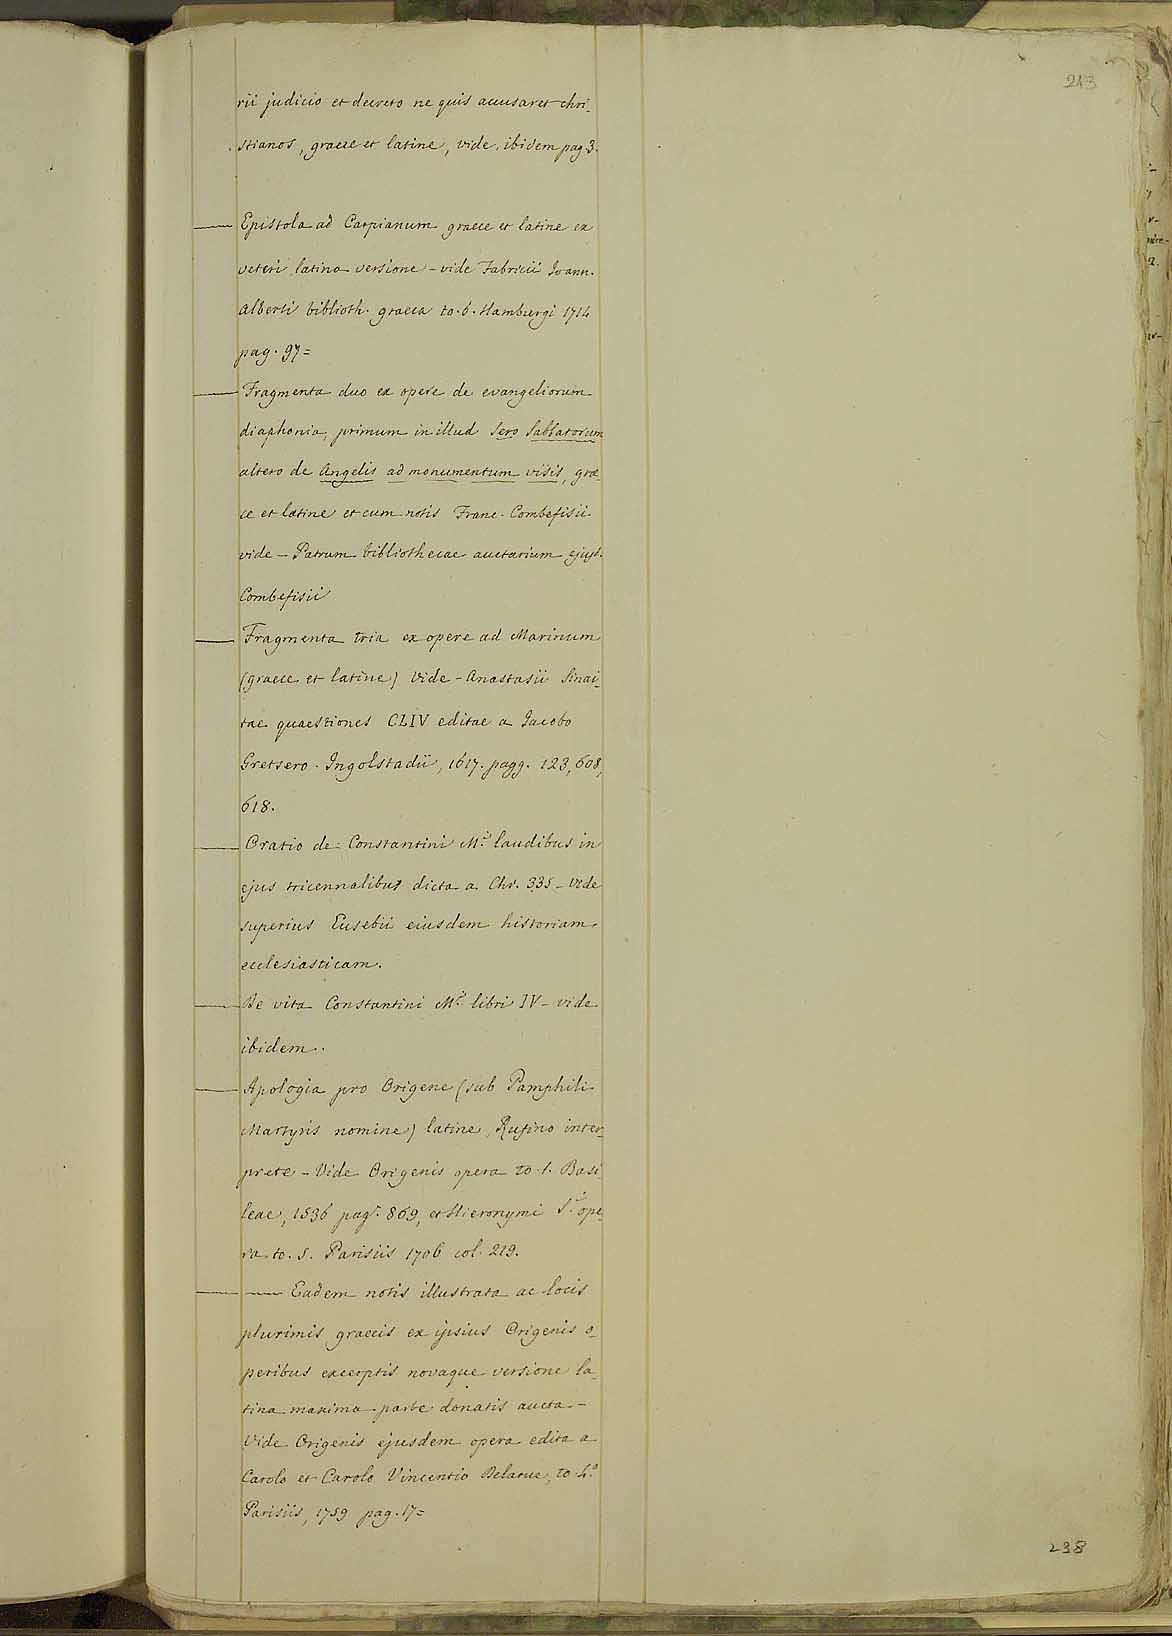 213
rii judicio et decreto ne quis accusaret chri_
stianos, graece et latine, vide, ibidem pag. 3.
— Epistola ad Carpianum graece et latine ex
veteri latina versione - vide Fabricii Joann.
Alberti biblioth. graeca to. 6. Hamburgi 1714
pag. 97=
— Fragmenta duo ex opere de evangeliorum
diaphonia, primum in illud Sero Sabbatorum
altero de Angelis ad monumentum visis, grae_
ce et latine et cum notis Franc. Combefisii
vide - Patrum bibliothecae auctarium ejusd.
Combefisii
— Fragmenta tria ex opere ad Marinum
(graece et latine) vide - Anastasii Sinai_
tae quaestiones CLIV editae a Jacobo
Gretsero. Ingolstadii, 1617. pagg. 123, 608,
618.
— Oratio de Constantini M.i laudibus in
ejus tricennalibus dicta a. Chr. 335 - vide
superius Eusebii eiusdem historiam
ecclesiasticam.
— De vita Constantini M.i libri IV - vide
ibidem..
— Apologia pro Origene (sub Pamphili
Martyris nomine) latine, Rufino inter_
prete - Vide Origenis opera to. 1. Basi_
leae, 1536 pag. 869, et Hieronymi S.i ope_
ra to. 5. Parisiis 1706 col. 219.
— — Eadem notis illustrata ac locis
plurimis graecis ex ipsius Origenis o_
peribus excerptis novaque versione la_
tina maxima parte donatis aucta -
Vide Origenis ejusdem opera edita a
Carolo et Carolo Vincentio Delarue, to. 4.o
Parisiis, 1759 pag. 17=
238